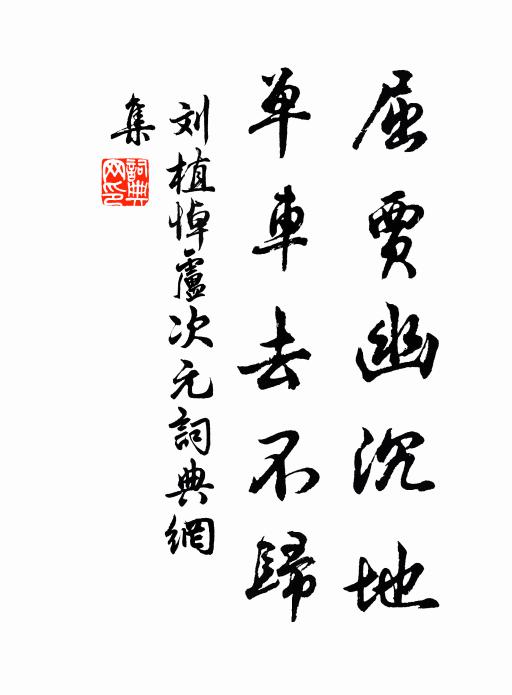 屈賈幽沉地
单車去不歸
刘植悼盧次元詞典網
集
詞典网印